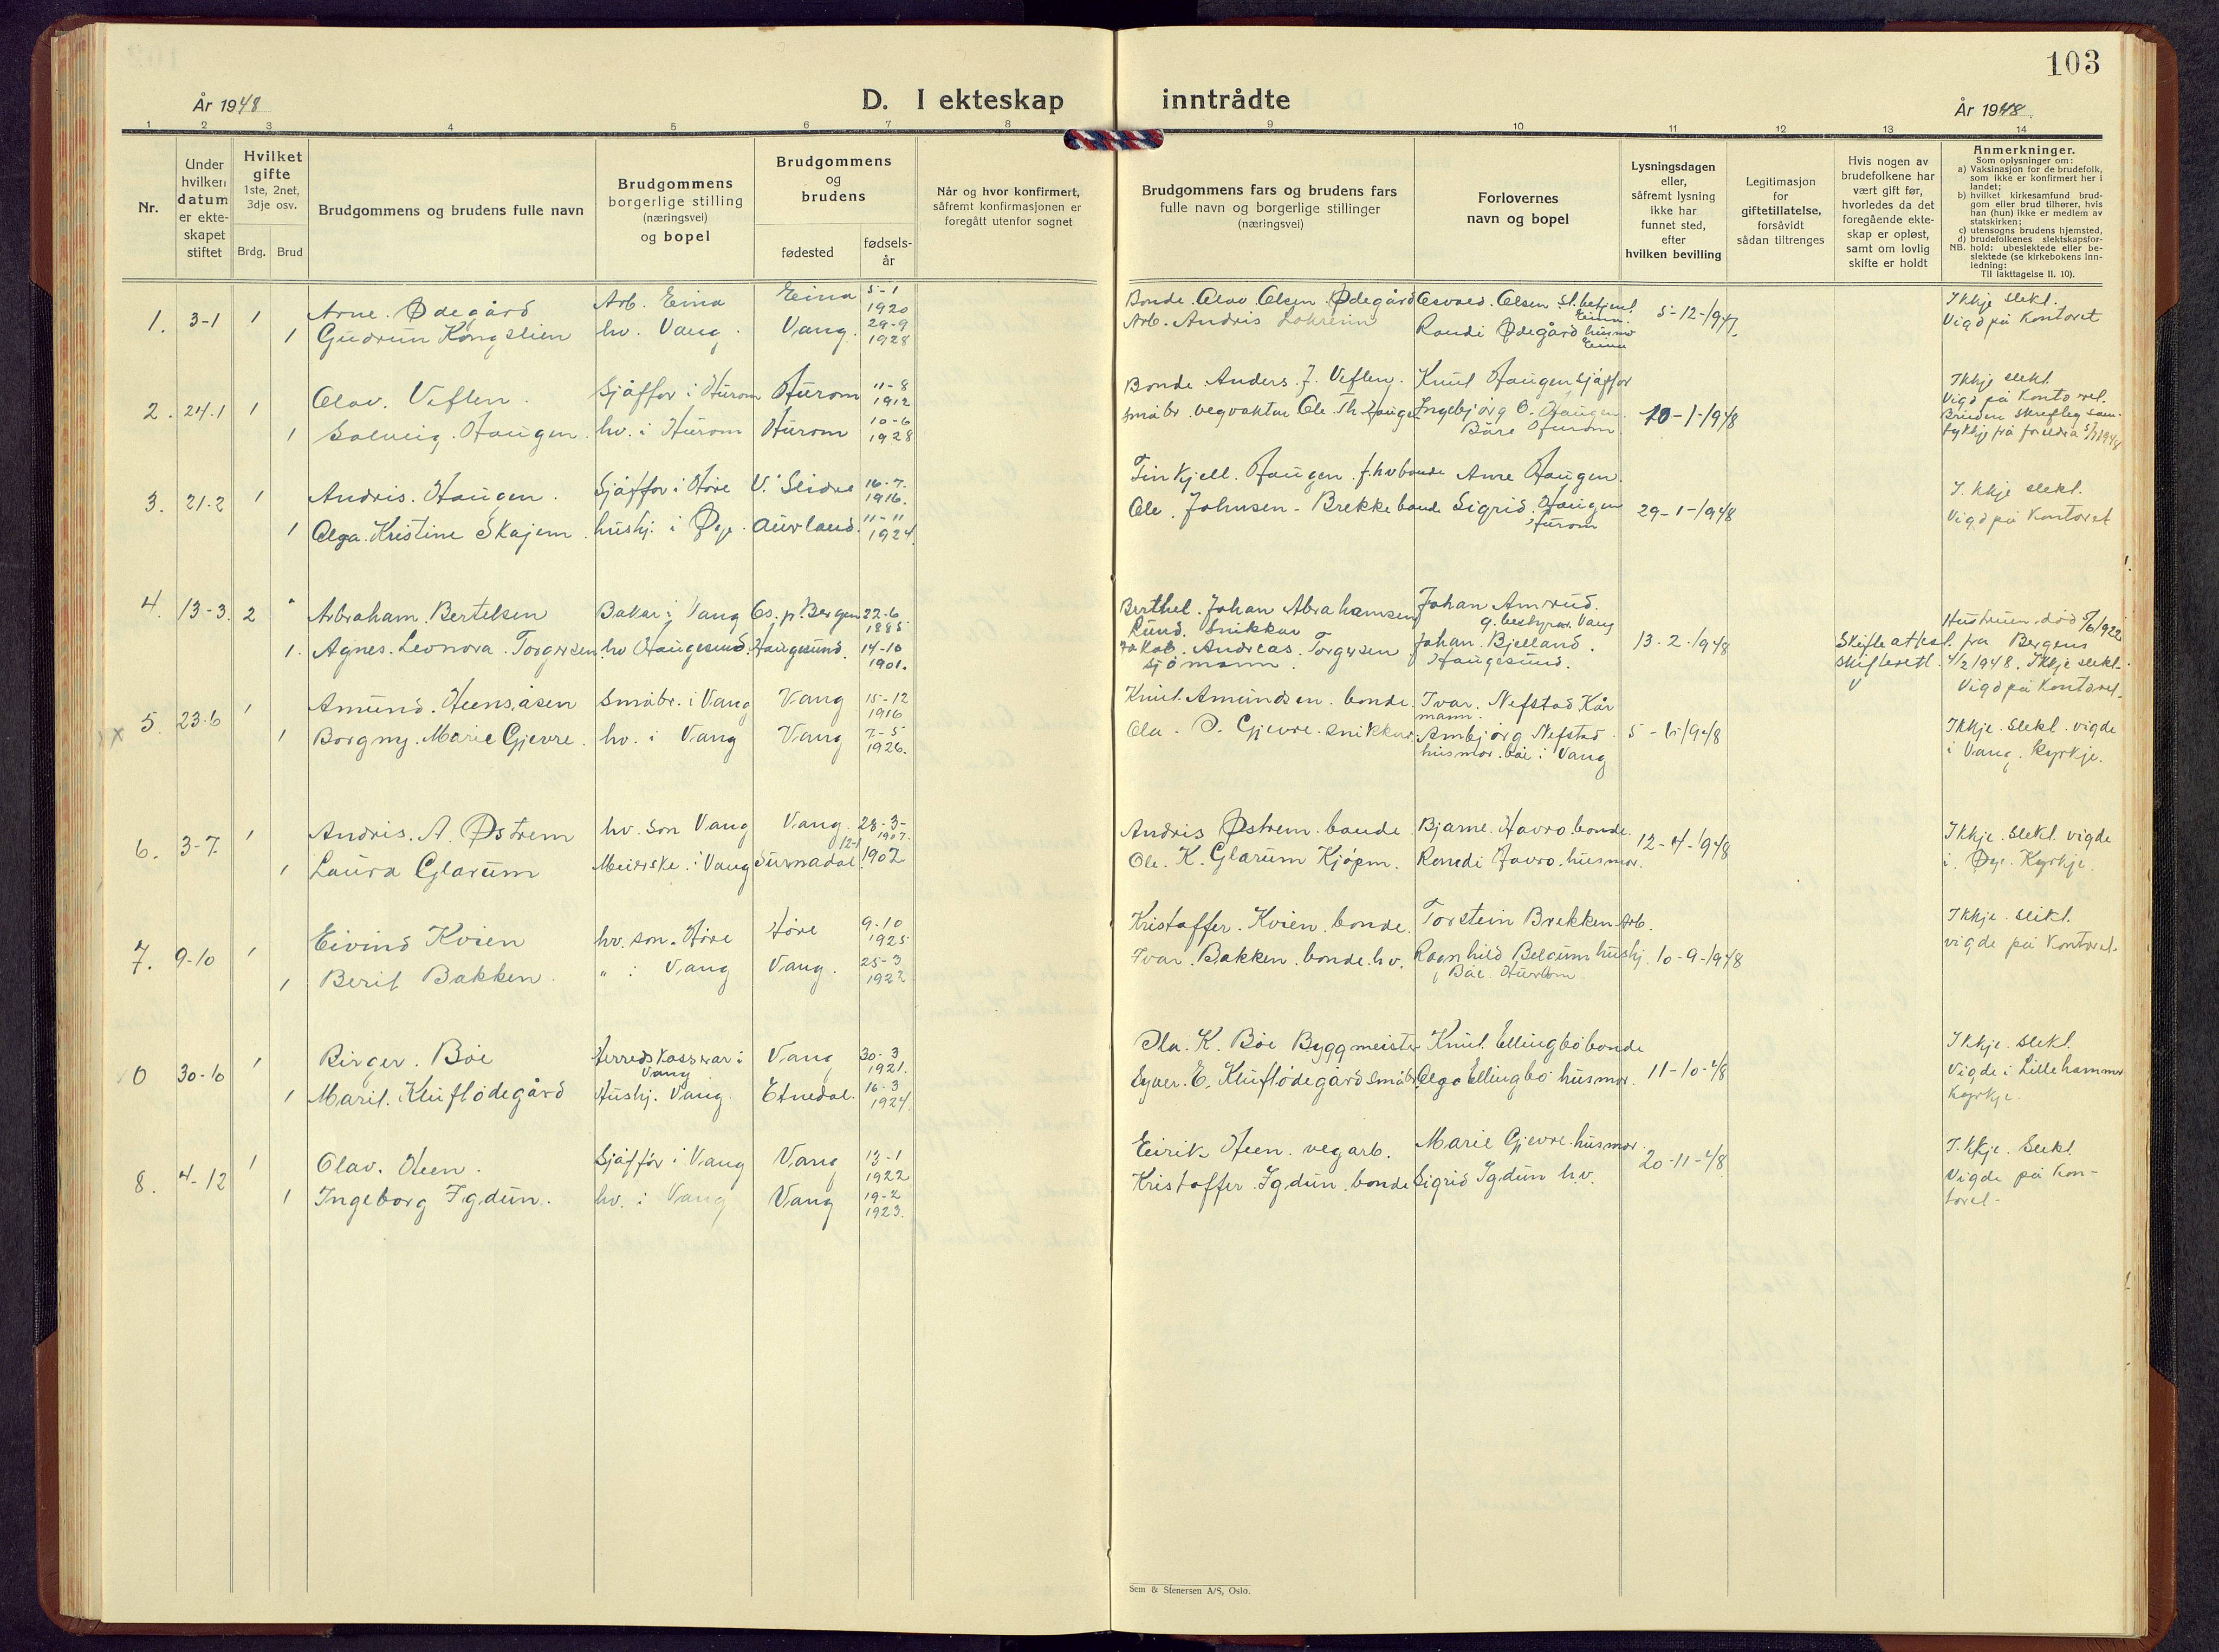 103
År 1948
D. I ekteskap inntrådte
År 1948
1 2 3 4 5 6 7 8 9 10 11 12 13 14
Nr.
Under
hvilken
datum
er ekte-
skapet
stiftet
Hvilket
gifte
1ste, 2net,
3dje osv.
Brdg. Brud
Brudgommens og brudens fulle navn
Brudgommens
borgerlige stilling
(næringsvei)
og bopel
Brudgommens
og
brudens
fødested
fødsels-
år
Når og hvor konfirmert,
såfremt konfirmasjonen er
foregått utenfor sognet
Brudgommens fars og brudens fars
fulle navn og borgerlige stillinger
(næringsvei)
Forlovernes
navn og bopel
Lysningsdagen
eller,
såfremt lysning
ikke har
funnet sted,
efter
hvilken bevilling
Legitimasjon
for
giftetillatelse,
forsåvidt
sådan tiltrenges
Hvis nogen av
brudefolkene har
vært gift før,
hvorledes da det
foregående ekte-
skap er opløst,
samt om lovlig
skifte er holdt
Anmerkninger.
Som oplysninger om:
a) Vaksinasjon for de brudefolk,
som ikke er konfirmert her i
landet;
b) hvilket kirkesamfund brud-
gom eller brud tilhører, hvis
han (hun) ikke er medlem av
statskirken;
c) utensogns brudens hjemsted,
d) brudefolkenes slektskapsfor-
NB. hold: ubeslektede eller be-
slektede (se kirkebokens inn-
ledning:
Til iakttagelse II. 10).
1. 3-1 1 Arne. Ødegård Arb. Eina Eina 5-1 1920
1 Gudrun Kongslien hv. Vang. Vang. 29-9 1928
Bonde. Olav Olsen Ødegård
Arb. Andris
Osvald. Olsen st.betjent
Eina.
Randi Ødegård husmor
Eina
5-12-1947
Ikkje slekt.
Vigd på Kontoret
2. 24.1 1 Olav. Veflen. Sjåffør i Hurom Hurom 11-8 1912
1 Solveig. Haugen. hv. i Hurom Hurom 10-6 1928
Bonde Anders. J. Veflen.
småbr. vegvaktar Ole. Th. Hauge
Knut Haugen sjåffør
Ingebjørg O. Haugen.
Hurom
10-1-1948
Ikkje slekt.
Vigd på Kontoret.
Bruden skrifteleg sam-
tykkje frå foreldra
3. 21-2 1 Andris. Haugen. Sjåffør i Høre V. Slidre 16-7. 1916.
1 Olga. Kristine Skajem. hushj. i Øye. Aurland. 11-11 1924.
Kjell. Haugen. f.hv bonde
Ole. Johnsen - Brekke bonde
Arne Haugen.
Sigrid. Haugen
Hurom
29-1-1948
I. kkje slekt.
Vigd på Kontoret
4. 13-3. 2 Abraham. Bertelsen Bakar i Vang Os. p. Bergen 22-6 1885
1. Agnes. Leonora. Torgersen. hv Haugesund. Haugesund. 14-10 1901.
Berthel. Johan Abrahamsen
Rund. Snikkar
Jakob. Andreas. Torgersen
sjømann.
Johan Amrud.
g. bestyrar. Vang
Johan. Bjelland.
Haugesund.
13-2-1948
Hustruen død 5/6 1922
Skifteattest. fra Bergens
skifterett. 4/2 1948. Ikkje slekt.
Vigd på Kontoret.
x 5. 23-6 1 Amund. Heensåsen Småbr. i Vang Vang 15-12 1916
1 Borgny. Marie Gjevre. hv. i Vang Vang 7-5 1926.
Knut. Amundsen. bonde.
Ola. O. Gjevre. snikkar.
Ivar. Nefstad Kår
mann.
Ambjørg Nefstad.
husmor. båe i Vang
5-6-1948
Ikkje. slekt. vigde
i Vang. kyrkje.
6. 3-7. 1 Andris. A. Østrem hv. son Vang Vang. 28-3- 1907.
1 Laura Glærum Meierske. i Vang Surnadal. 12-1 1902
Andris Østrem. bonde.
Ole. K. Glærum Kjøpm.
Bjarne. Hovro. bonde.
Randi Hovro. husmor.
12-4-1948
Ikkje. slekt. vigde
i. Øye. Kyrkje.
7. 9-10 1 Eivind Kvien hv. son. Høre Høre 9-10 1925
1 Berit Bakken. " i Vang Vang. 25-3 1922
Kristoffer. Kvien. bonde.
Ivar. Bakken. bonde. hv.
Torstein Brekken Arb.
Ragnhild Belgum hushj.
Båe. Hurom
10-9-1948
Ikkje. slekt.
vigde på Kontoret.
0 30-10 1 Birger. Bøe Herredskasserar i Vang Vang 30-3 1921.
1 Marit. Kluflødegård Hushj. Vang. Etnedal. 16-3 1924.
Ola. K. Bøe Byggmeister
E. Kluflødegård småbr.
Knut. Ellingbø bonde
Olga Ellingbø husmor.
11-10-48
Ikkje. slekt.
Vigde i Lillehammer
kyrkje.
8. 4-12 1 Olav. Heen. Sjåffør i Vang Vang 13-1 1922
1 Ingeborg Igdun. hv. i Vang Vang 19-2 1923.
Eirik Heen. vegarb.
Kristoffer. Igdun. bonde
Marie Gjevre. husmor.
Sigrid Igdun hv.
20-11-48
I. kkje. slekt.
Vigde på Kon-
toret.
Sem & Stenersen A/S, Oslo.